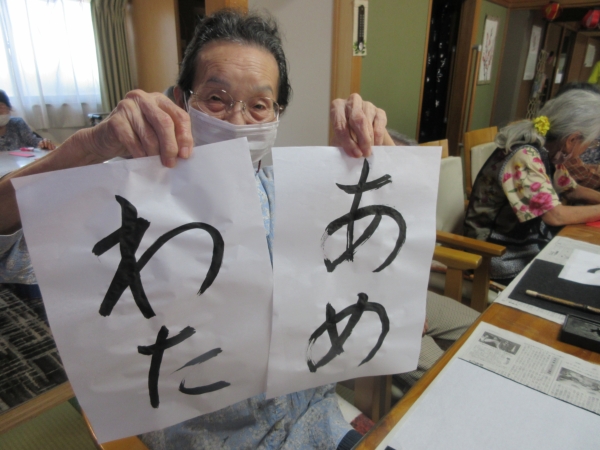 あめ
わた